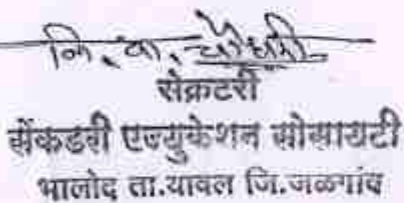 नि. वा. चौधरी
सेक्रटरी
सेंकडरी एज्युकेशन सोसायटी
भालोद ता.यावल जि.जळगांव